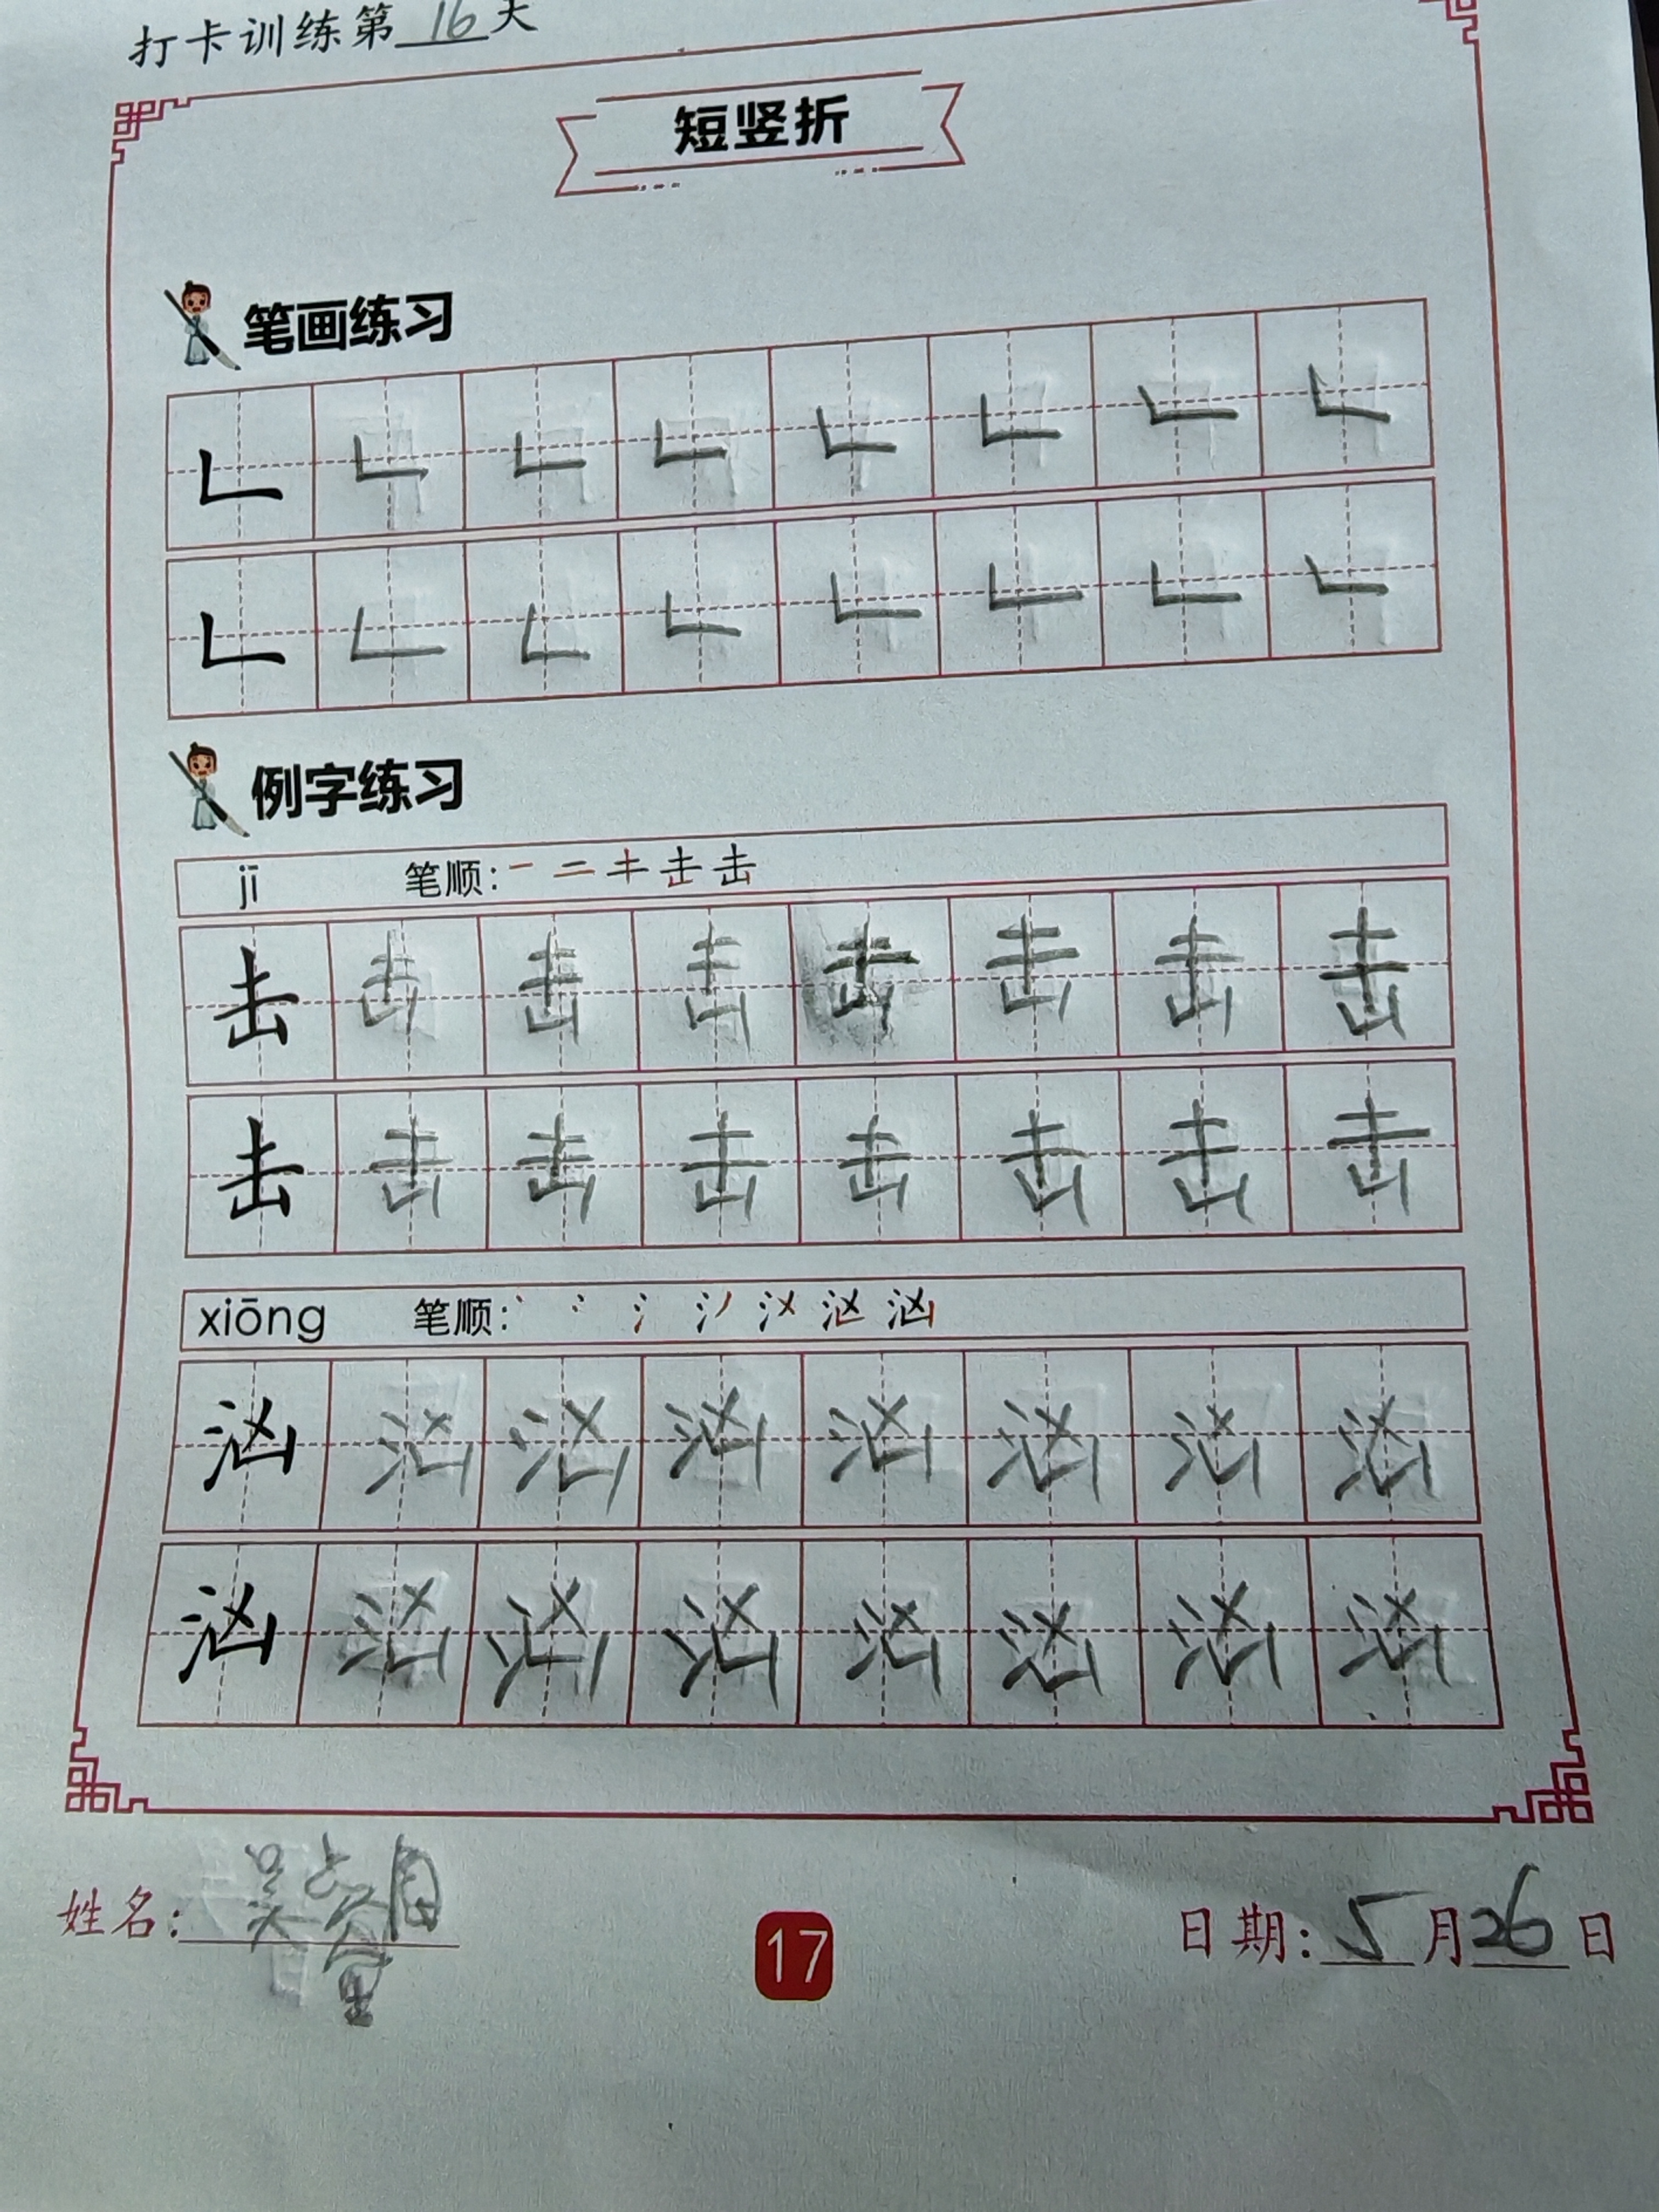 打卡训练第16天
短竖折
笔画练习
𠃊 𠃊 𠃊 𠃊 𠃊 𠃊 𠃊 𠃊
𠃊 𠃊 𠃊 𠃊 𠃊 𠃊 𠃊 𠃊
例字练习
jī 笔顺: 一 二 キ 击 击
击 击 击 击 击 击 击 击
击 击 击 击 击 击 击 击
xiōng 笔顺:
汹 汹 汹 汹 汹 汹 汹 汹
汹 汹 汹 汹 汹 汹 汹 汹
姓名: 17 日期: 5月26日